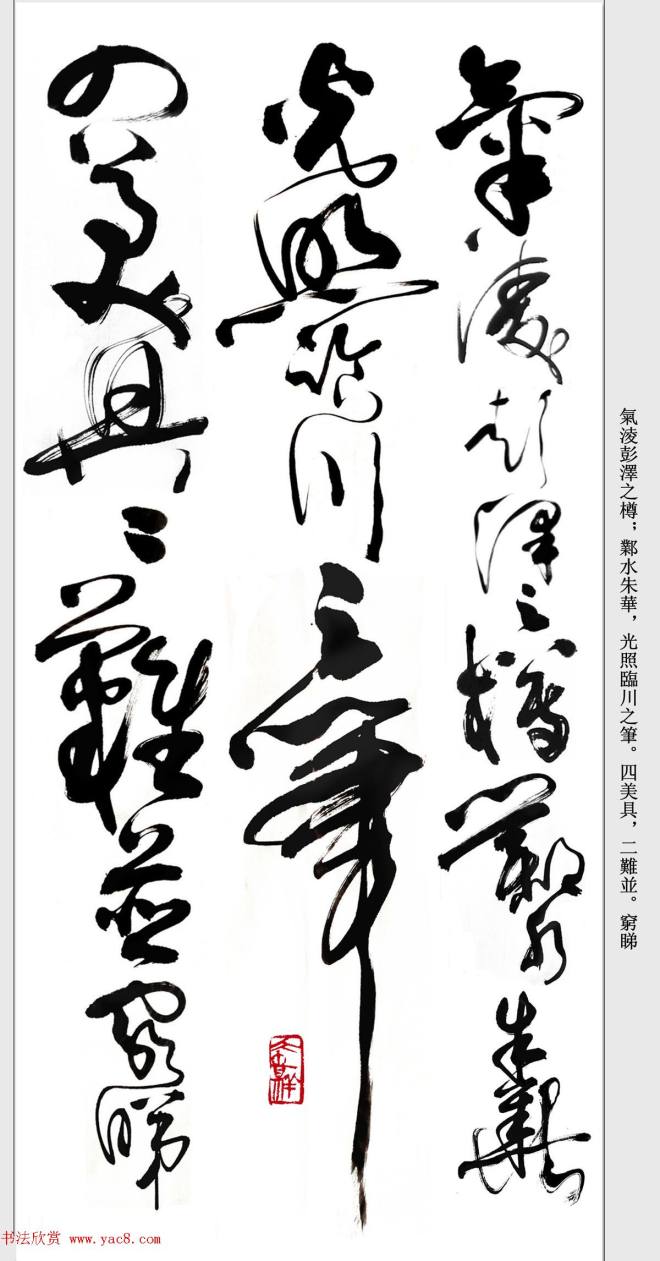 氣淩彭澤之樽鄴水朱華
光照臨川之筆
四美具二難並窮睇
氣淩彭澤之樽；鄴水朱華，光照臨川之筆。四美具，二難並。窮睇
书法欣赏 www.yac8.com